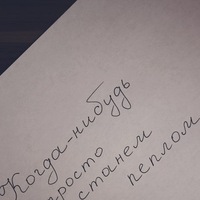 Когда-нибудь
просто
станем
пеплом